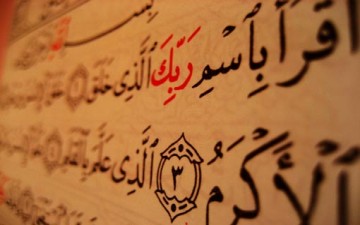 بِسْمِ
ٱقْرَأْ بِٱسْمِ رَبِّكَ ٱلَّذِى خَلَقَ ١
ٱلْأَكْرَمُ ٣ ٱلَّذِى عَلَّمَ بِٱلْقَلَمِ